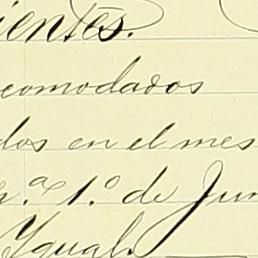 ientes.
comodados
dos en el mes
r.ª 1.º de Jun
Ygual.